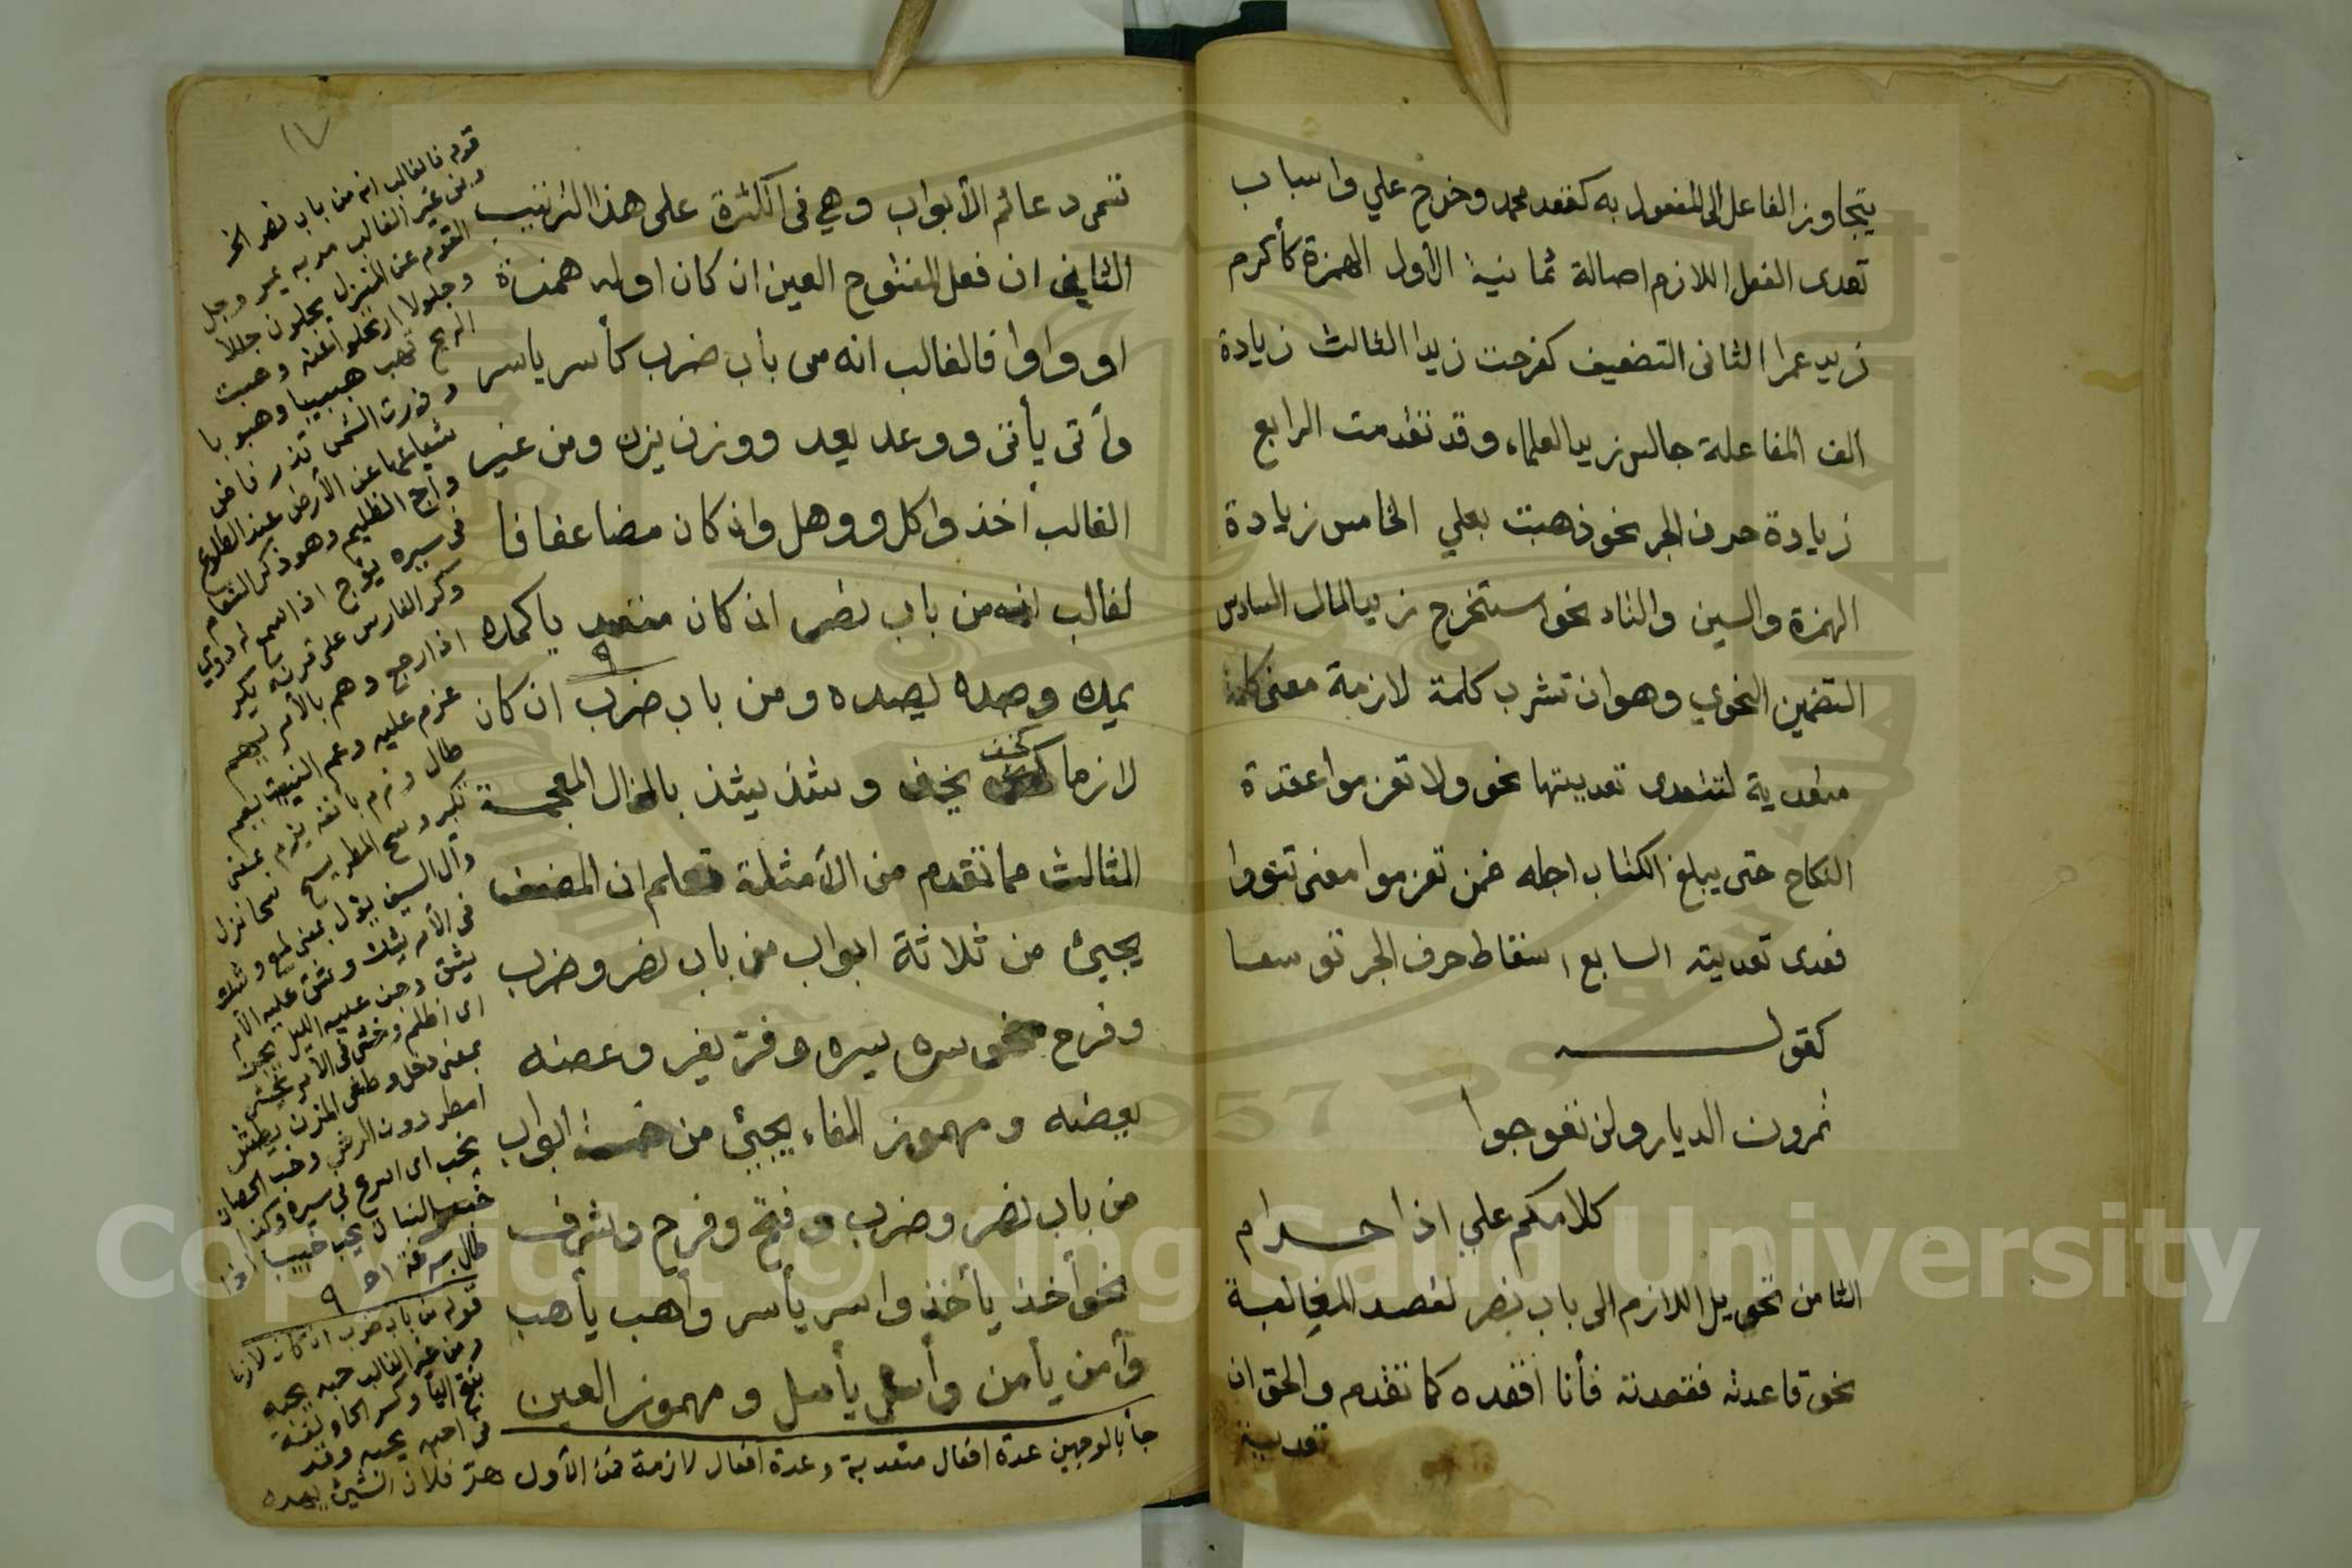 يتجاوز الفاعل الى المفعول به كقعد محمد وخرج علي واسباب
تعدى الفعل اللازم اصالة ثمانية الأول الهمزة كأكرم
زيد عمرا الثانى التضعيف كفرحت زيدا الثالث زيادة
الف المفاعلة جالس زيد العلماء وقد تقدمت الرابع
زيادة حرف الجر نحو ذهبت بعلي الخامس زيادة
الهمزة والسين والتاء نحو استخرج زيد المال السادس
التضمين النحوي وهو ان تشرب كلمة لازمة معنى كلمة
متعدية لتتعدى تعديتها نحو ولا تعزموا عقدة
النكاح حتى يبلغ الكتاب اجله ضمن تعزموا معنى تنووا
فعدى تعديته السابع اسقاط حرف الجر توسعا
كقولـــه
تمرون الديار ولن تعوجوا
كلامكم علي اذا حرام
الثامن تحويل اللازم الى باب نصر لقصد المغالبة
نحو قاعدته فقعدته فأنا اقعده كما تقدم والحق ان
تعدية
١٧
تسمى دعائم الأبواب وهي فى الكثرة على هذا الترتيب
الثاني ان فعل المفتوح العين ان كان اوله همزة
او واوا فالغالب انه من باب ضرب كأسر ياسر
وأتى يأتى ووعد يعد ووزن يزن ومن غير
الغالب أخذ واكل ووهل وان كان مضاعفا فا
لغالب انه من باب نصر ان كان متعديا كمده
يمده وصده يصده ومن باب ضرب ان كان
لازما كخف يخف وشذ يشذ بالذال المعجمة
الثالث مما تقدم من الأمثلة تعلم ان المضعف
يجيئ من ثلاثة ابواب من باب نصر وضرب
وفرح نحو سره يسره وفر يفر وعضه
يعضه ومهموز الفاء يجيئ من خمسة ابواب
من باب نصر وضرب وفتح وفرح وشرف
نحو أخذ يأخذ واسر يأسر وأهب يأهب
وأمن يأمن وأسل يأسل ومهموز العين
قوله فالغالب انه من باب نصر الخ
ومن غير الغالب مر به يمر وجل
القوم عن المنزل يجلون جلالا
وجلولا ارتحلوا عنه وهبت
الريح تهب هبيبا وهبوبا
وذرت الشمس تذر فاض
شعاعها عن الأرض عند الطلوع
وأج الظليم وهو ذكر النعام
فى سيره يؤج اذا سمع له دوي
وكر الفارس على قرنه يكر
اذا رجع وهم بالأمر يهم
عزم عليه وعم النبت يعم
طال وزم بانفه يزم بمعنى
تكبر وسح المطر يسح سحا نزل
وأل السيف يؤل بمعنى لمع وشك
فى الأمر يشك وشق عليه الأمر
يشق وجن عليه الليل يجن
اى اظلم وخش فى الأمر يخش
بمعنى دخل وطش المزن يطش
امطر دون الرش وخب الحصان
يخب اى اسرع في سيره وكذا
خب النبات يخب خبيبا اذا
طال بسرعة اهـ
قوله من باب ضرب ان كان لازما
ومن غير الغالب حبه يحبه
بفتح اليا وكسر الحا ولغة
فى احبه يحبه وقد
جأ بالوجهين عدة افعال متعدية وعدة افعال لازمة فمن الأول هر فلان الشيئ يهره